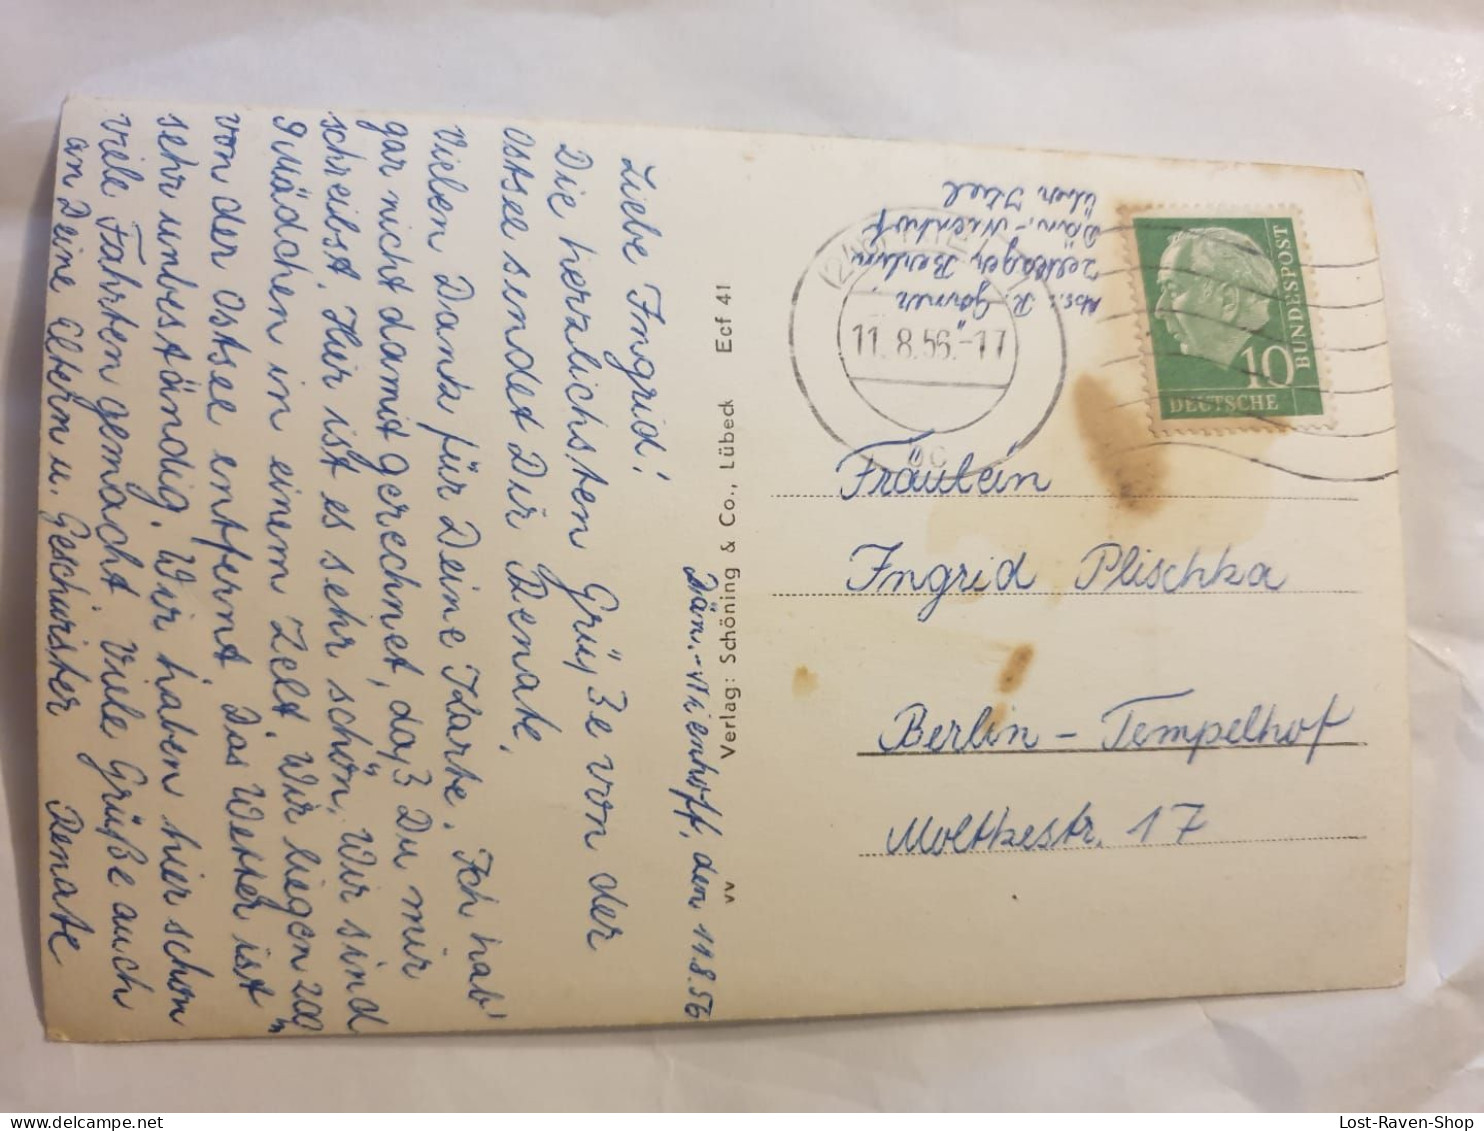 Dän.-Nienhoff, den 11.8.56
Liebe Ingrid!
Die herzlichsten Grüße von der
Ostsee sendet Dir Renate.
Vielen Dank für Deine Karte. Ich hab'
gar nicht damit gerechnet, daß Du mir
schreibst. Hier ist es sehr schön. Wir sind
9 Mädchen in einem Zelt. Wir liegen 200 m
von der Ostsee entfernt. Das Wetter ist
sehr unbeständig. Wir haben hier schon
viele Fahrten gemacht. Viele Grüße auch
an Deine Eltern u. Geschwister Renate
VV Verlag: Schöning & Co., Lübeck Ecf 41
Abs.: R.
Zeltlager Berlin
Dän.-Nienhof
über Kiel
11.8.56.-17
DEUTSCHE
BUNDESPOST
10
Fräulein
Ingrid Plischka
Berlin - Tempelhof
Moltkestr. 17
Lost-Raven-Shop